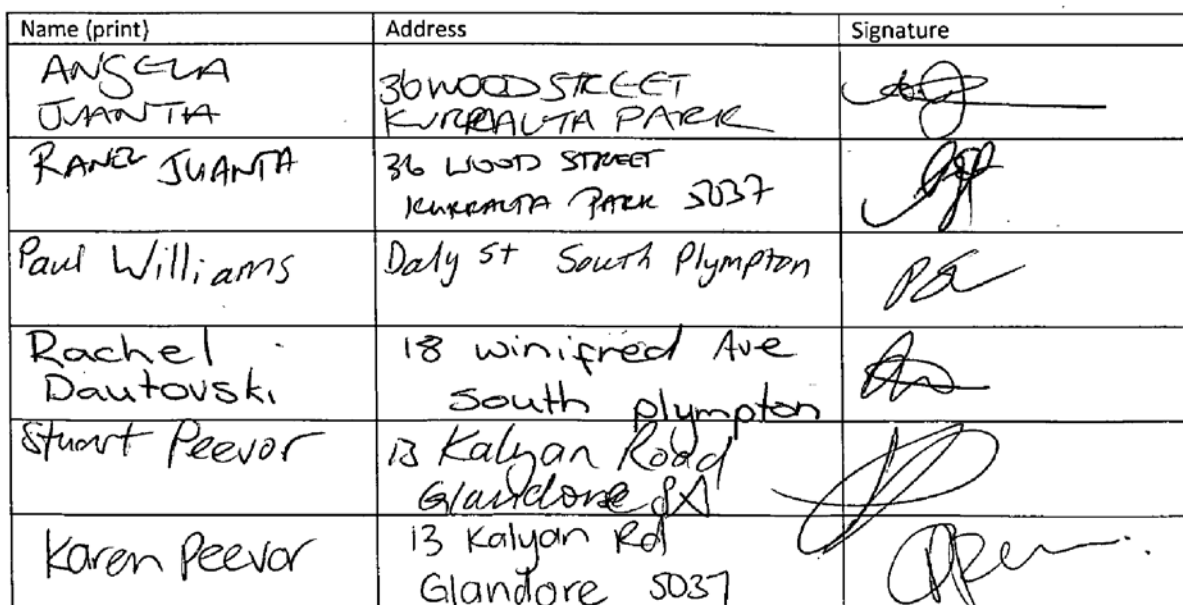 Name (print) Address Signature
ANGELA
JUANTA
36 WOOD STREET
KURRALTA PARK
RANEL JUANTA
36 WOOD STREET
KURRALTA PARK 5037
Paul Williams
Daly St South Plympton
Rachel
Dautovski
18 winifred Ave
South plympton
Stuart Peevor
13 Kalyan Road
Glandore SA
Karen Peevor
13 Kalyan Rd
Glandore 5037